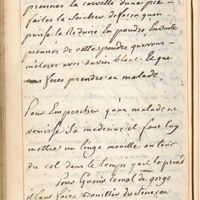 prennes la cervelle d'une pie
faites la secher de façon quon
puisse la Reduire En poudre Ensuitte
prennes de cette poudre que vous
mélerez avec du vin blanc. Ce que
vous feres prendre au malade
Pour Empescher qu'un malade ne
vomisse sa medecine il faut luy
mettre un linge mouillé autour
du col dans le temps quil la prend
Pour Guerir le mal de gorge
il faut faire Bouillir du